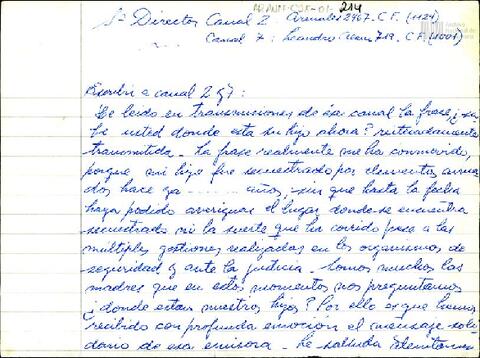 AR-APM-CJX-01-214
Sr Director Canal 2 Arenales 2467. C.F. (1124)
Canal 7: Leandro Alem 719. C.F. (1001)
Escribir a canal 2 y 7:
He leido en transmisiones de ese canal la frase ¿sa-
be usted donde esta su hijo ahora? reiteradamente
transmitida. La frase realmente me ha conmovido,
porque mi hijo fue secuestrado por elementos arma
dos, hace ya ........ años, sin que hasta la fecha
haya podido averiguar el lugar donde se encuentra
secuestrado ni la suerte que ha corrido pese a las
múltiples gestiones realizadas en los organismos de
seguridad y ante la justicia. Somos muchas las
madres que en estos momentos nos preguntamos
¿donde estan nuestros hijos? Por ello es que hemos
recibido con profunda emoción el mensaje soli-
dario de esa emisora. Le saluda atentamente